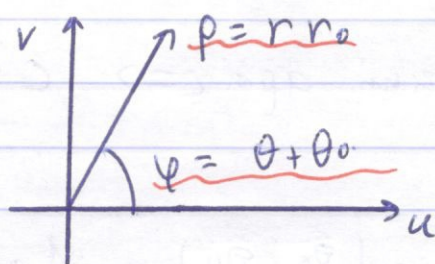 v
ρ = r r₀
φ = θ + θ₀.
u